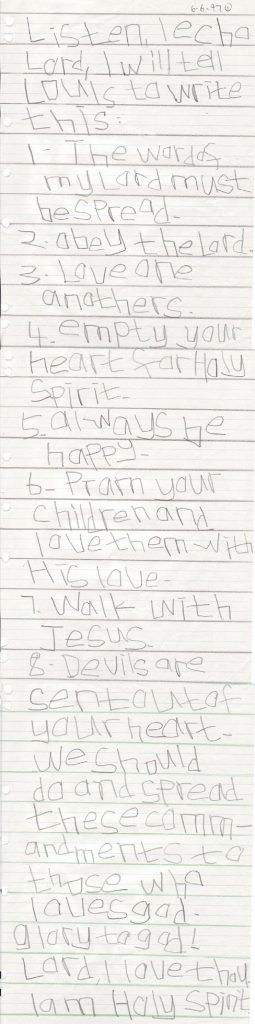 6-6-97 ①
Listen, I echo
Lord, I will tell
Louis to write
this:
1- The words
my Lord must
be spread-
2. obey the Lord.
3. Love one
anothers.
4. empty your
heart for Holy
Spirit.
5. always be
happy-
6- Pram your
children and
love them with
His love-
7. Walk with
Jesus.
8- Devils are
sent out of
your heart-
we should
do and spread
these comm-
andments to
those who
loves god.
glory to god!
Lord, I love thou
I am Holy Spirit